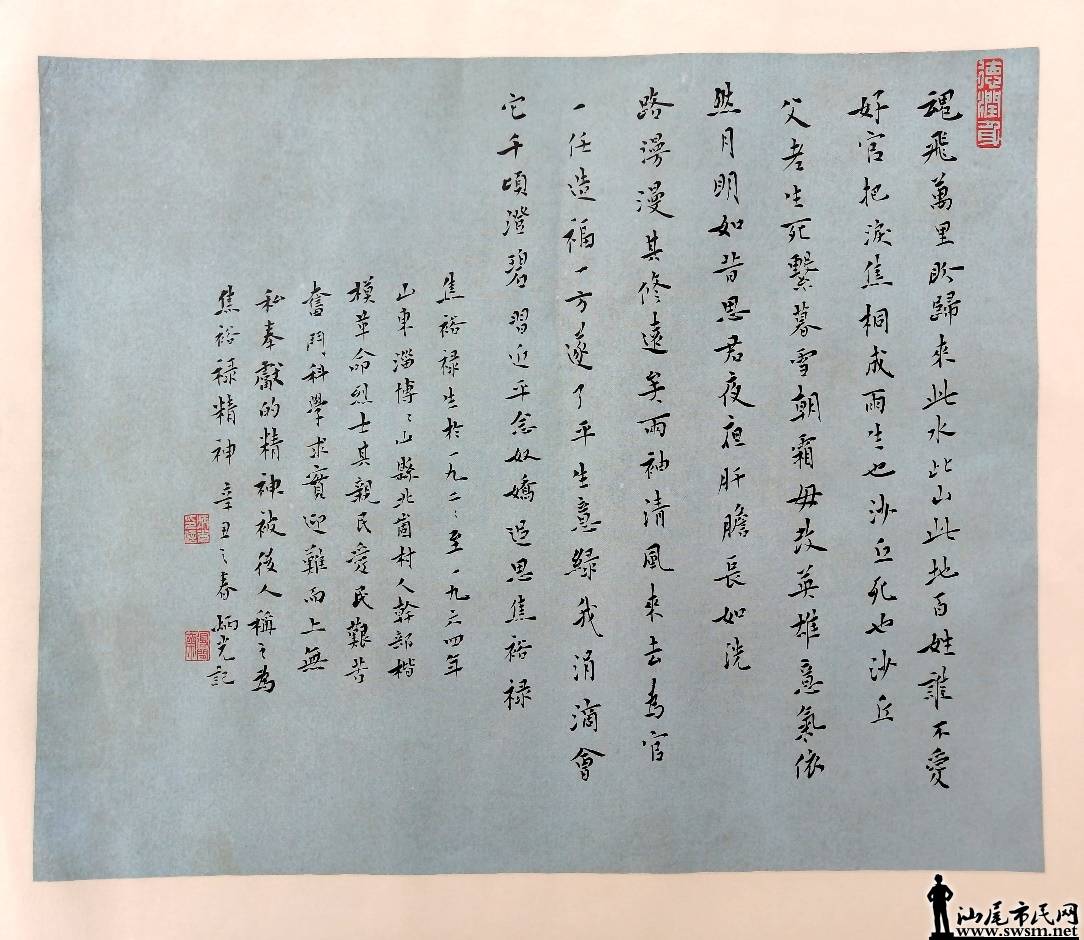 德潤身
魂飛萬里盼歸來此水此山此地百姓誰不愛
好官把淚焦桐成雨生也沙丘死也沙丘
父老生死繫暮雪朝霜毋改英雄意氣依
然月明如昔思君夜夜肝膽長如洗
路漫漫其修遠矣兩袖清風來去為官
一任造福一方遂了平生意綠我涓滴會
它千頃澄碧習近平念奴嬌追思焦裕禄
焦裕禄生於一九二二至一九六四年
山東淄博博山縣北崮村人幹部楷
模革命烈士其親民愛民艱苦
奮鬥科學求實迎難而上無
私奉獻的精神被後人稱之為
焦裕禄精神辛丑之春炳光記
汕尾市民网
www.swsm.net